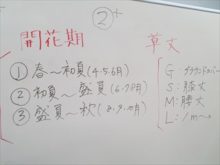 ②+
開花期
① 春〜初夏(4.5.6月)
② 初夏〜盛夏(6.7.8月)
③ 盛夏〜秋(8.9.10月)
草丈
G:グラウンドカバー
S:膝丈
M:腰丈
L:1m〜